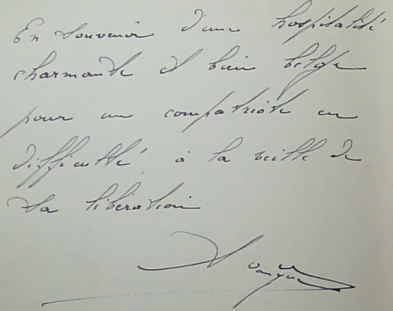 En souvenir d'une hospitalité
charmante et bien belge
pour un compatriote en
difficulté, à la veille de
sa libération